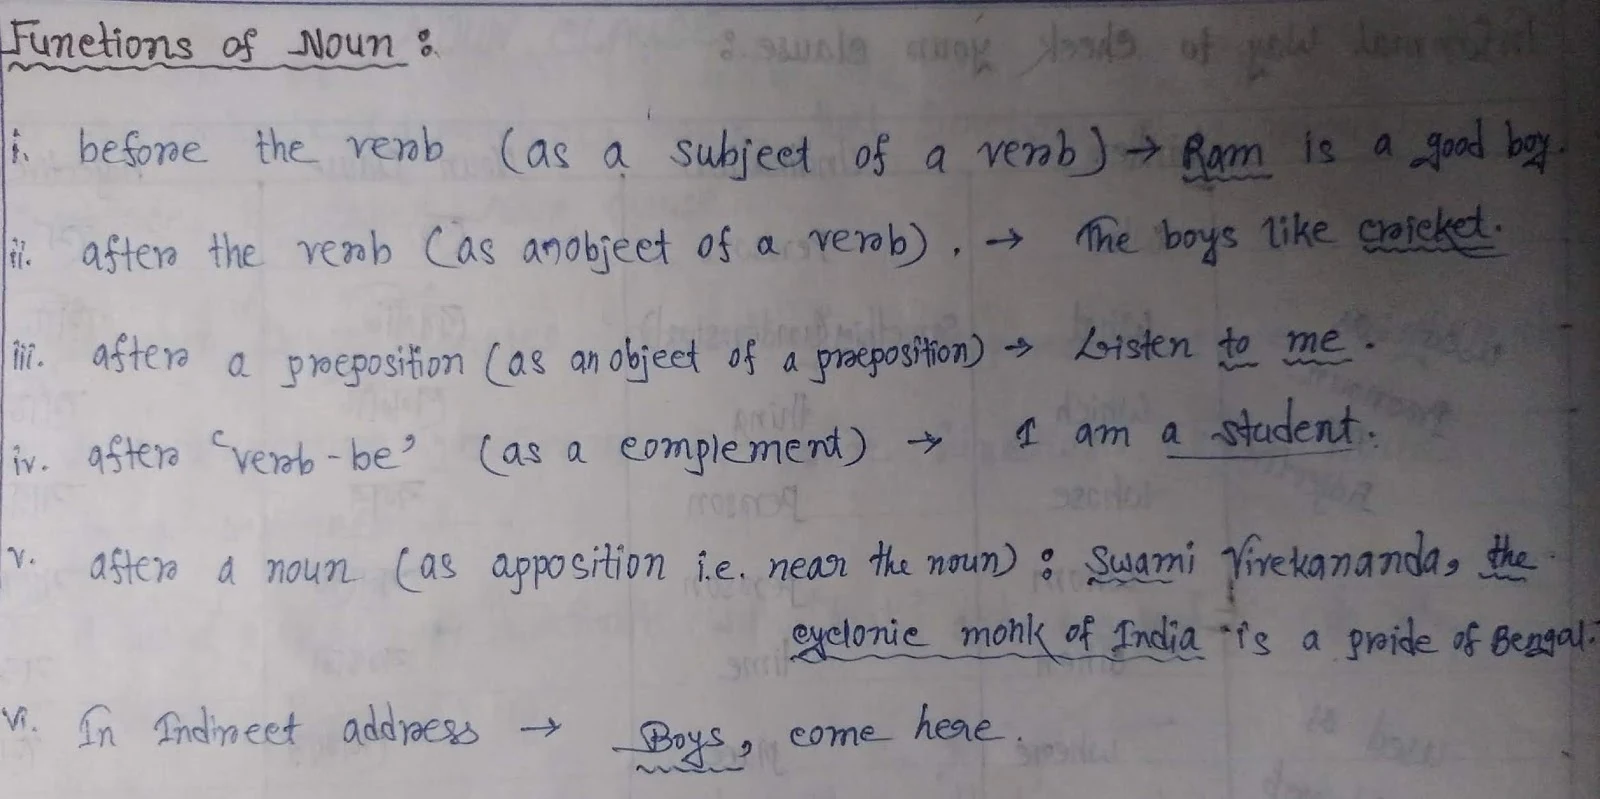 Functions of Noun :
i. before the verb (as a subject of a verb) → Ram is a good boy.
ii. after the verb (as an object of a verb). → The boys like cricket.
iii. after a preposition (as an object of a preposition) → Listen to me.
iv. after 'verb-be' (as a complement) → I am a student.
v. after a noun (as apposition i.e. near the noun) : Swami Vivekananda, the
cyclonic monk of India is a pride of Bengal.
vi. In Indirect address → Boys, come here.